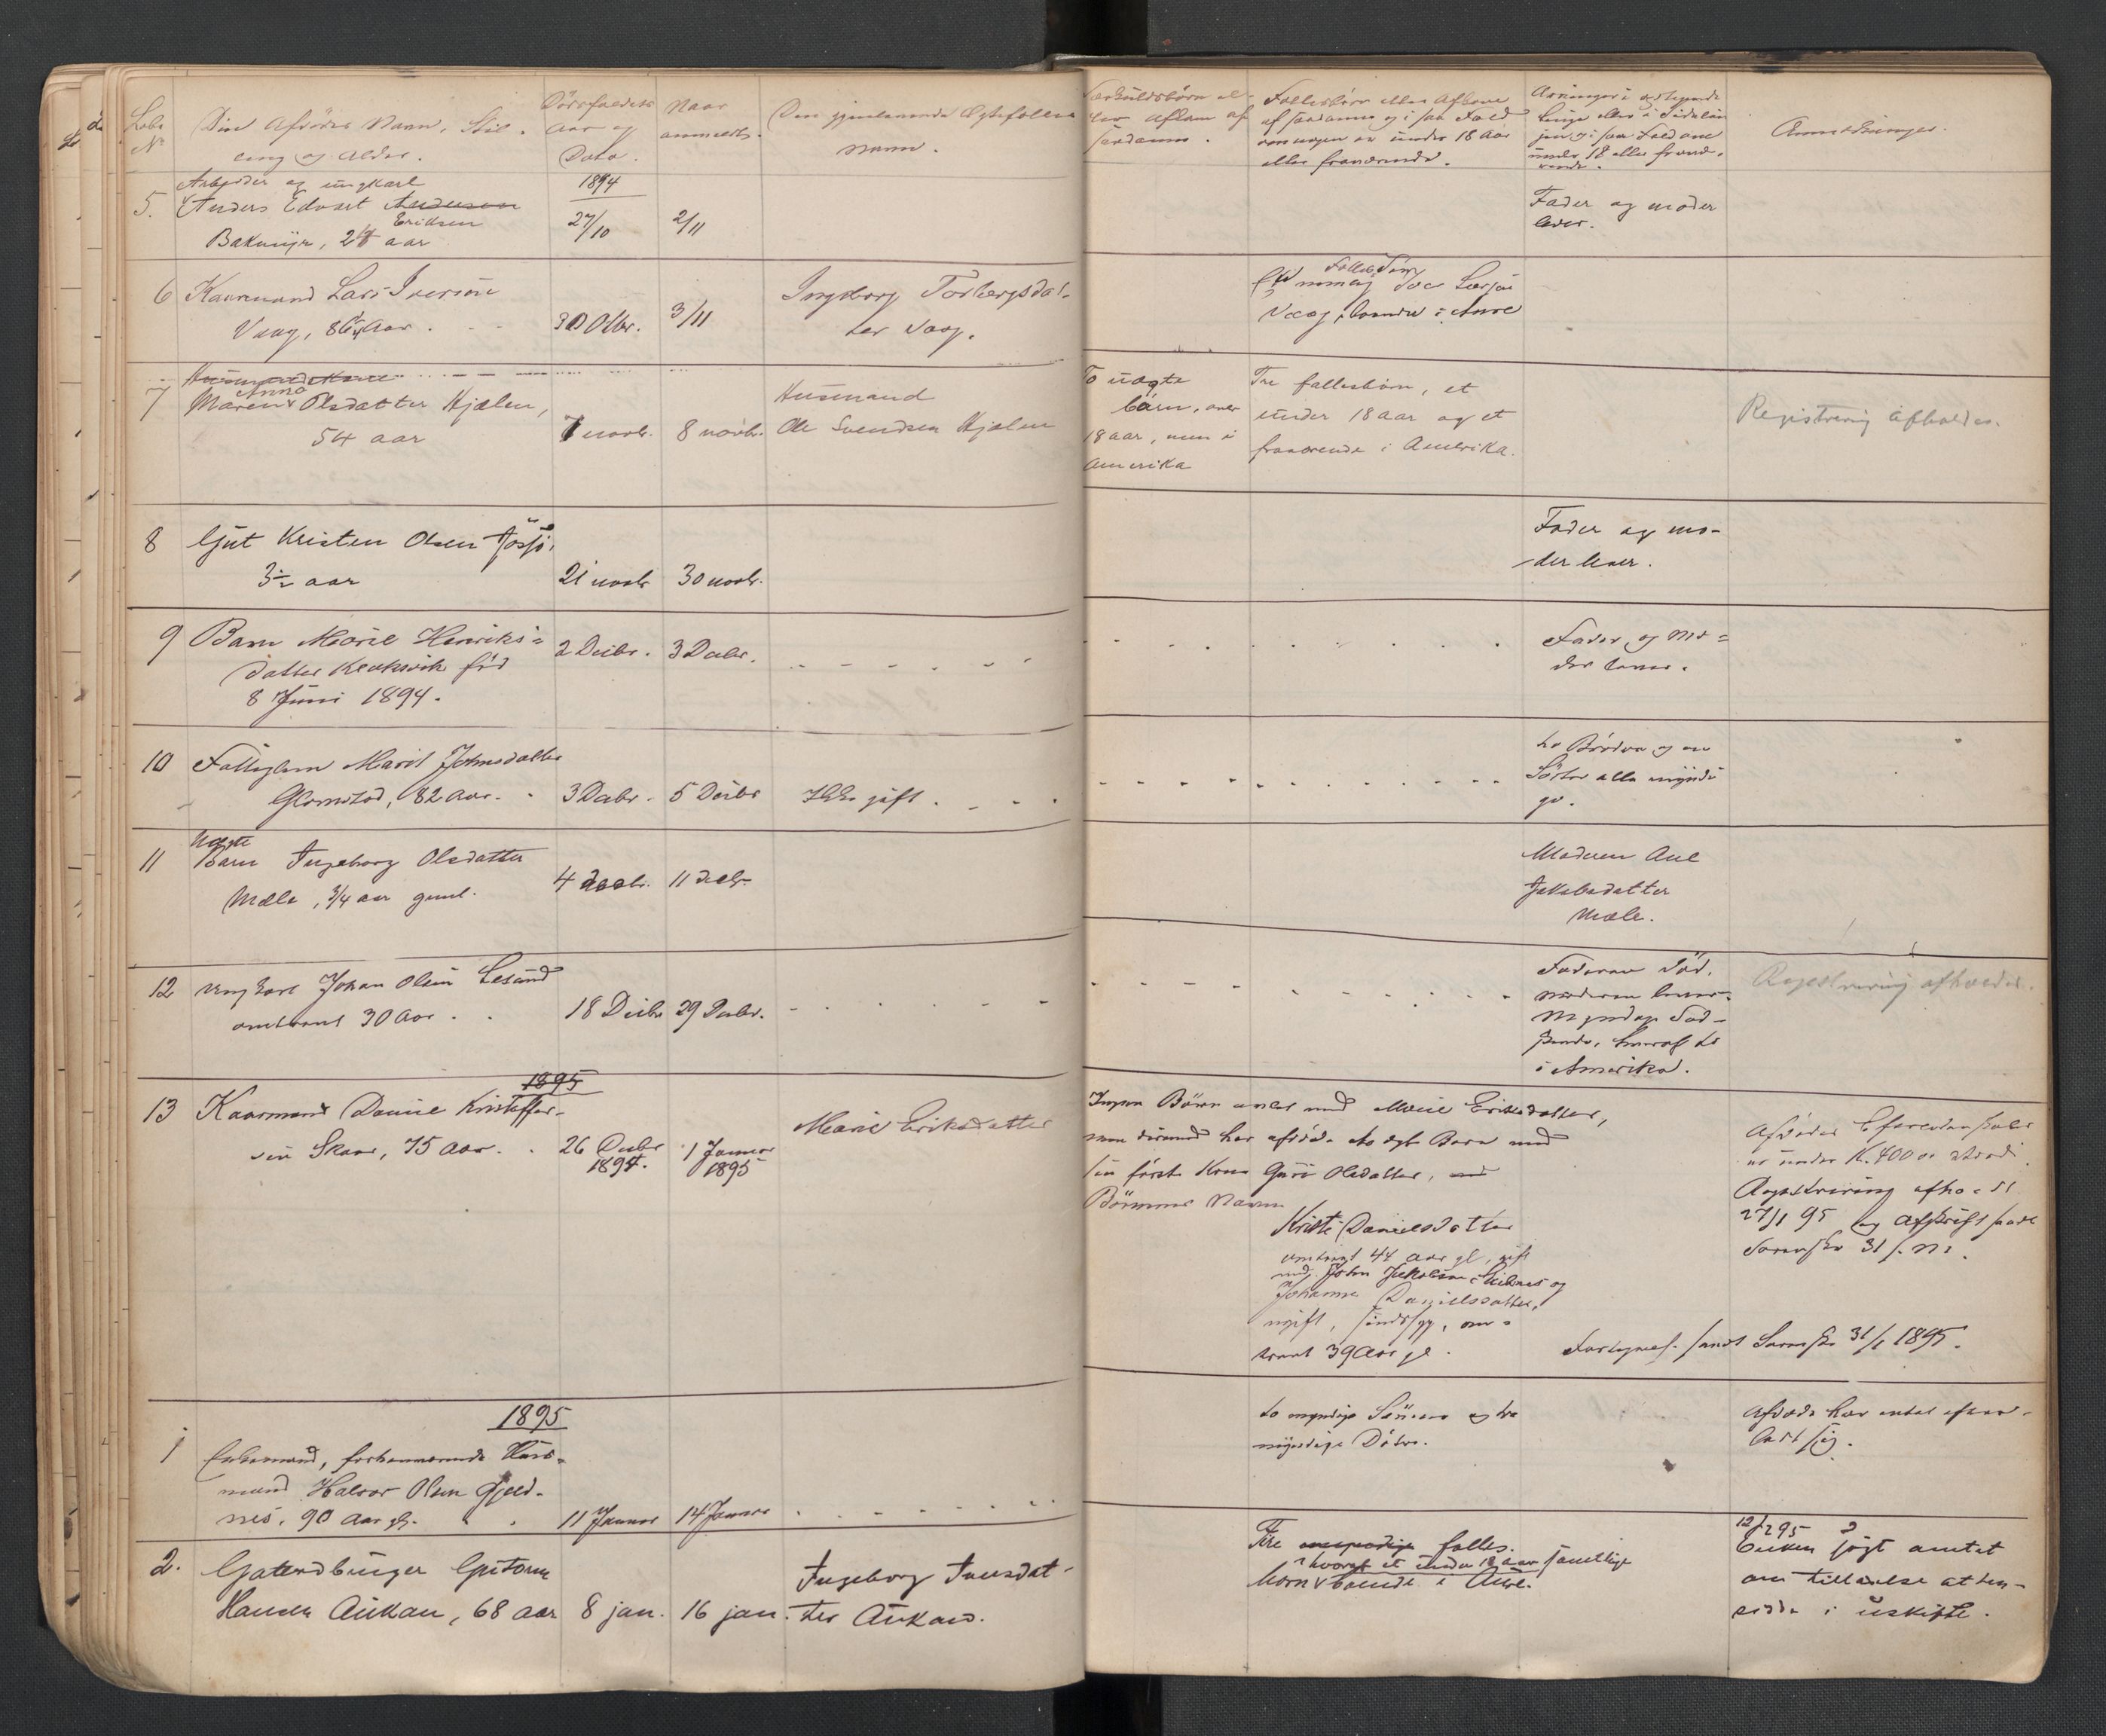 Løbe
No
Den Afdødes Navn, Stil-
ling og Alder.
Dødsfaldets
Aar og
Dato.
Naar
anmeldt.
Den gjenlevende Ægtefælles
Navn.
Særkuldsbørn el-
ler Afkom af
saadanne.
Fællesbørn eller Afkom
af saadanne og i saa Fald
om nogen er under 18 Aar
eller fraværende.
Arvinger i opstigende
Linje eller i Sidelin
jen og i saa Fald om
under 18 eller fravæ-
rende.
Anmerkninger.
5.
Arbejder og ungkarl
Anders Edvart Andersen
Eriksen
Bakmyr, 24 aar
1894
27/10
2/11
Fader og moder
lever.
6
Kaarmand Lars Iversen
Vaag, 86 Aar.
30 Otbr.
3/11
Ingeborg Torbergsdat-
ter Vaag.
Fælles Søn
myndig Iver Larsen
Vaag, boende i Aure
7
Husmandskone
Anna
Maren Olsdatter Hjælen,
54 aar
7 novbr.
8 novbr.
Husmand
Ole Svendsen Hjælen
To uægte
børn, over
18 aar, nu i
Amerika
Tre fællesbørn, et
under 18 aar og et
fraværende i Amerika.
Registrering afholdes.
8
Gut Kristen Olsen
3½ aar
21 novbr
30 novbr.
Fader og mo-
der lever.
9
Barn Marie Henriks-
datter født
8 Juni 1894.
2 Decbr.
3 Decbr.
Fader og Mo-
der lever.
10
Fattiglem Marit Johnsdatter
Glomstad, 82 Aar.
3 Decbr.
5 Decbr
Ikke gift.
to Brødre og en
Søster alle myndi
ge.
11
Uægte
Barn Ingeborg Olsdatter
Mæle, 3/4 aar gml.
4 decbr.
11 decbr.
Moderen Ane
Jakobsdatter
Mæle.
12
Ungkarl Johan Olsen Lesund
omtrent 30 Aar.
18 Decbr
29 Decbr.
Faderen død,
moderen lever.
Myndige Sød-
skende, hvoraf to
i Amerika.
Registrering afholdes.
1895
13
Kaarmand Daniel Kristoffer-
sen Skaar, 75 Aar.
26 Decbr
1894.
1 Januar
1895
Marie Eriksdatter
Ingen Børn avlet med Marie Eriksdatter,
men derimod har afdøde to ægte Børn med
sin første Kone Guri Olsdatter,
Børnenes Navne
Kristi Danielsdatter
omtrent 44 Aar gl, gift
med John Jakobsen og
Johanna Danielsdatter,
ugift, sindssyg, om-
trent 39 Aar gl.
Afdødes Efterladenskaber
er under K. 400
Registrering afholdt
27/1 95 og Afskrift sendt
Sorensk. 31 s. M.
sendt Sorensk. 31/1 1895.
1895
1
Enkemand, forhenværende Huus-
mand Halvor Olsen Gjeld-
nes, 90 Aar gl.
11 Januar
14 Januar
to myndige Sønner og tre
myndige Døtre.
Afdøde har intet efter-
ladt sig.
2.
Gaardbruger Guttorm
Hansen Aukan, 68 aar
8 jan.
16 jan.
Ingeborg Iversdat-
ter Aukan.
Fire fælles-
hvoraf et under 18 aar samtlige
børn boende i Aure.
12/2 95
Enken søgt amtet
om tilladelse at hen-
sidde i uskifte.